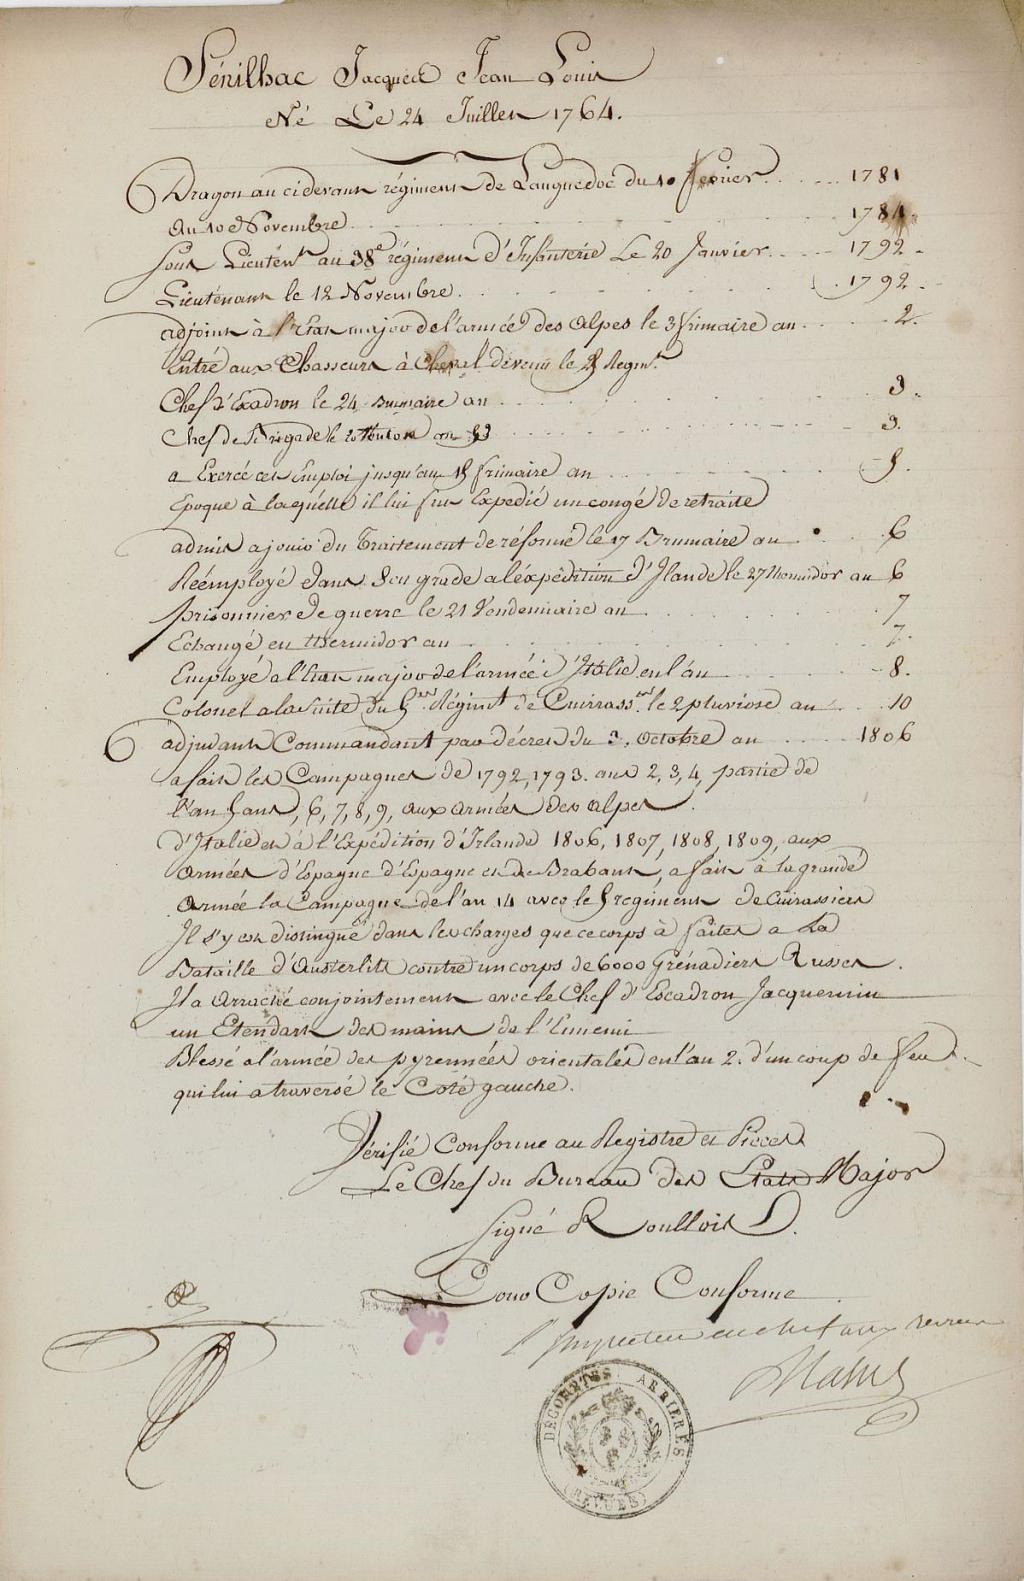 Sénilhac Jacques Jean Louis
Né Le 24 Juillet 1764.
Dragon au cidevant régiment de Languedoc du 10 février . . . . 1781
au 10 Novembre . . . . 1784.
Sous Lieutent au 38e régiment d'Infanterie Le 20 Janvier . . . . 1792.
Lieutenant le 12 Novembre . . . . 1792.
adjoint à l'Etat major de l'armée des Alpes le 3 frimaire an . . . . 2.
Entré aux Chasseurs à Cheval devenu le 25 Regmt
Chef d'Exadron le 24 Brumaire an . . . . 3.
Chef de Brigade le an . . . . 3.
a Exercé cet Emploi jusqu'au 15 frimaire an . . . . 5.
Epoque à laquelle il lui fut Expedié un congé de retraite
admis a jouir du Traitement de réforme le 17 Brumaire an . . 6
Réémployé dans Son grade a l'éxpédition d'Ilande le 27 thermidor an 6
prisonnier de guerre le 21 Vendemiaire an . . . . 7
Echangé en thermidor an . . . . 7.
Employé a l'Etat major de l'armée d'Italie en l'an . . . . 8.
Colonel a la Suite du 5en Régimt de Cuirassrs le 2 pluviose an . . . 10
adjudant Commandant par décret du 3. Octobre an . . . . 1806
a fait les Campagnes de 1792, 1793. ans 2, 3, 4, partie de
l'an 5 ans, 6, 7, 8, 9, aux armées des alpes.
d'Italie et à l'Expédition d'Irlande 1806, 1807, 1808, 1809, aux
armées d'Espagne d'Espagne et de Brabant, a fait à la grande
armée la Campagne de l'an 14 avec le 5 regiment de Cuirassiers
Il s'y est distingué dans les charges que ce corps à faites a La
Bataille d'Austerlits contre un corps de 6000 Grénadiers Russes.
Il a Arraché conjointement avec le Chef d'Escadron Jacquemin
un Etendart des mains de l'Ennemi
Blessé a l'armée des pyrennées orientales en l'an 2. d'un coup de feu
qui lui a traversé le Coté gauche.
Vérifié Conforme au Registre et Pieces
Le Chef du Bureau des Etats Major
Signé Roullois
Pour Copie Conforme
l'Inspecteur en chef aux revues
DECOMPTES ARRIERES
(REVUES)